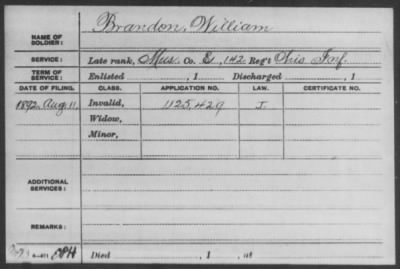 Brandon, William
NAME OF SOLDIER:
SERVICE: Late rank, Mus. Co. E, 142 Reg't Ohio Inf.
TERM OF SERVICE: Enlisted , 1 Discharged , 1
DATE OF FILING. CLASS. APPLICATION NO. LAW. CERTIFICATE NO.
1892, Aug. 11, Invalid, 1125,429 J.
Widow,
Minor,
ADDITIONAL SERVICES:
REMARKS:
Died , 1 , at